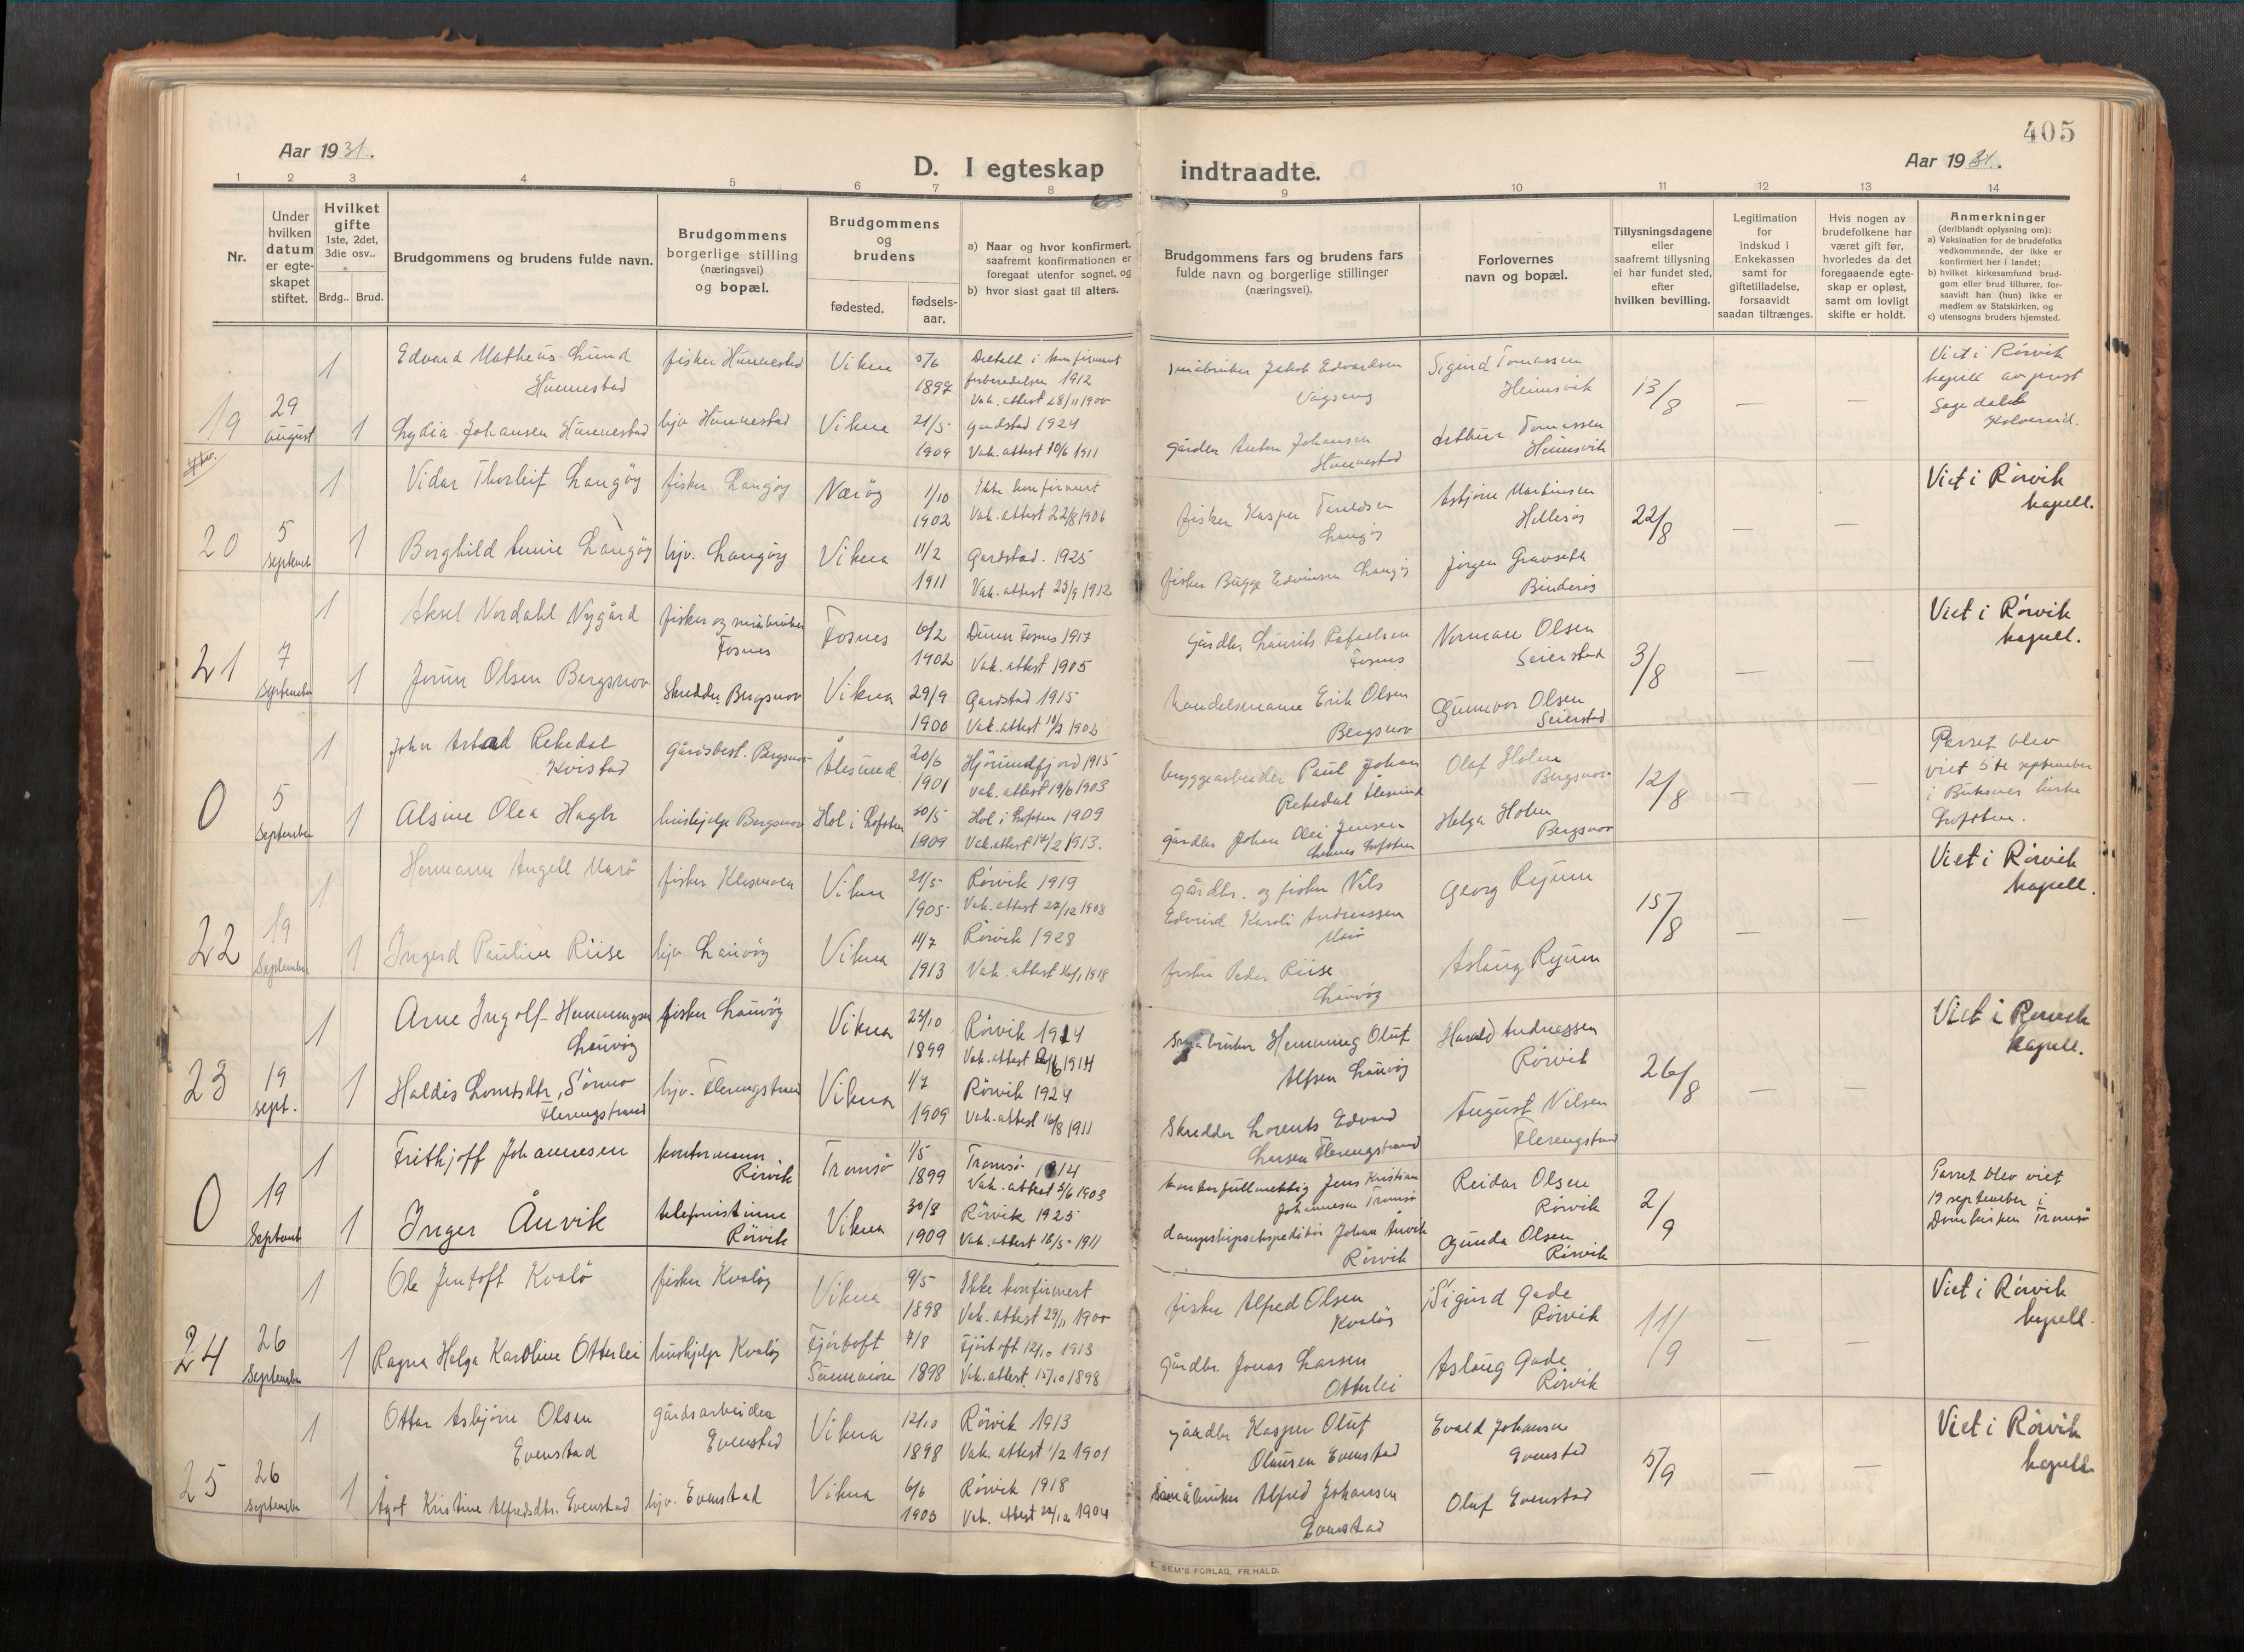 405
Aar 1931.
D. I egteskap indtraadte.
Aar 1931.
1 2 3 4 5 6 7 8 9 10 11 12 13 14
Nr.
Under hvilken datum er egteskapet stiftet.
Hvilket gifte
1ste, 2det, 3die osv..
Brdg.. Brud.
Brudgommens og brudens fulde navn.
Brudgommens borgerlige stilling (næringsvei) og bopæl.
Brudgommens og brudens
fødested.
fødsels-aar.
a) Naar og hvor konfirmert, saafremt konfirmationen er foregaat utenfor sognet, og
b) hvor sidst gaat til alters.
Brudgommens fars og brudens fars fulde navn og borgerlige stillinger (næringsvei).
Forlovernes navn og bopæl.
Tillysningsdagene eller saafremt tillysning ei har fundet sted, efter hvilken bevilling.
Legitimation for indskud i Enkekassen samt for giftetilladelse, forsaavidt saadan tiltrænges.
Hvis nogen av brudefolkene har været gift før, hvorledes da det foregaaende egteskap er opløst, samt om lovligt skifte er holdt.
Anmerkninger
(deriblandt oplysning om):
a) Vaksination for de brudefolks vedkommende, der ikke er konfirmert her i landet;
b) hvilket kirkesamfund brudgom eller brud tilhører, forsaavidt han (hun) ikke er medlem av Statskirken, og
c) utensogns bruders hjemsted.
19 29 august
1 Edvard Matheus Lund Hunnestad fisker Hunnestad Vikna 5/6 1897 Deltatt i konfirmant forberedelsen 1912 Vak. attest 28/11 1900
småbruker Jakob Edvardsen Vågseng Sigurd Tomassen Heimsvik 13/8 — —
Viet i Rörvik kapell av prost Kolvereid.
1 Lydia Johansen Hunnestad hjv Hunnestad Vikna 21/5 1909 Gardstad 1924 Vak. attest 10/6 1911
gårdbr Anton Johansen Hunnestad Arthur Tomassen Heimsvik
20 5 septemb
1 Vidar Thorleif Langöy fisker Langöy Nærøy 1/10 1902 Ikke konfirmert Vak. attest 22/8 1906
fisker Kasper Langöy Asbjörn Martinsen 22/8 — —
Viet i Rörvik kapell.
1 Borghild Annie Langöy hjv. Langöy Vikna 11/2 1911 Gardstad. 1925 Vak. attest 25/9 1912
fisker Bugge Edvinsen Langöy Jörgen Bindalen
21 7 september
1 Aksel Nordahl Nygård fisker og småbruker Fosnes Fosnes 10/2 1902 Dunn Fosnes 1917 Vak. attest 1905
gårdbr Laurits Rafaelsen Fosnes Norman Olsen Seierstad 3/8 — —
Viet i Rörvik kapell.
1 Jorun Olsen Bergsnov Skredder Bergsnov Vikna 29/9 1900 Gardstad 1915 Vak. attest 10/2 1902
handelsmann Erik Olsen Bergsnov Gunnvor Olsen Seierstad
0 5 September
1 John Rekedal Kvistad Gårdsbest. Bergsnov Ålesund 20/6 1901 Hjörundfjord 1915 Vak. attest 19/6 1903
bryggearbeider Paul Johan Rekedal Ålesund Olaf Holm Bergsnov 12/8 — —
Parret blev viet 5te september i Buksnes kirke Lofoten.
1 Alsine Olea Hagh hushjelp Bergsnov Hol i Lofoten 30/5 1909 Hol i Lofoten 1909 Vak. attest 14/2 1913.
gårdbr Johan Olai Jensen Lofoten Helga Holm Bergsnov
22 19 September
1 Hermann Angell Marö fisker Vikna 21/5 1905 Rörvik 1919 Vak. attest 27/12 1908
gårdbr. og fisker Nils Edvind Karoli Andreassen Marö Georg Ryum 15/8 — —
Viet i Rörvik kapell.
1 Ingerd Pauline Riise hjv Lauvöy Vikna 11/7 1913 Rörvik 1928 Vak. attest 16/1 1918
fisker Peder Riise Lauvöy Aslaug Ryum
23 19 sept.
1 Arne Ingolf Henningsen Lauvöy fisker Lauvöy Vikna 23/10 1899 Rörvik 1914 Vak. attest 1914
Småbruker Henning Oluf Alfsen Lauvöy Harald Andreassen Rörvik 26/8 — —
Viet i Rörvik kapell.
1 Haldis Lorntsdtr. Sörmo Flerengstrand hjv. Flerengstrand Vikna 1/7 1909 Rörvik 1924 Vak. attest 16/8 1911
Skredder Lorents Edvard Larsen Flerengstrand August Nilsen Flerengstrand
0 19 Septemb
1 Frithjoff Johannesen kontormann Rörvik Tromsö 1/5 1899 Tromsö 1914 Vak. attest 5/6 1903
kontorfullmektig Jens Kristian Johannesen Tromsö Reidar Olsen Rörvik 2/9
Parret blev viet 19 september i Domkirken Tromsö
1 Inger Åuvik telefonistinne Rörvik Vikna 30/8 1909 Rörvik 1925 Vak. attest 18/5 1911
dampskipsekspeditör Johan Åuvik Rörvik Gunda Olsen Rörvik
24 26 September
1 Ole Jentoft Kvalö fisker Kvalöy Vikna 9/5 1898 Ikke konfirmert Vak. attest 29/11 1900
fisker Alfred Olsen Kvalöy Sigurd Gade Rörvik 11/9 — —
Viet i Rörvik kapell.
1 Ragna Helga Karoline Otterlei hushjelp Kvalöy Fjörtoft Sunnmöre 7/8 1898 Fjörtoft 12/10 1913 Vak. attest 15/10 1898
Gårdbr. Jonas Larsen Otterlei Aslaug Gade Rörvik
25 26 september
1 Ottar Asbjörn Olsen Evenstad gårdsarbeider Evenstad Vikna 12/10 1898 Rörvik 1913 Vak. attest 1/2 1901
gårdbr Kasper Oluf Olausen Evenstad Evald Johansen Evenstad 5/9 — —
Viet i Rörvik kapell
1 Ågot Kristine Alfredsdtr. Evenstad hjv. Evenstad Vikna 6/6 1903 Rörvik 1918 Vak. attest 22/12 1904
Småbruker Alfred Johansen Evenstad Oluf Evenstad
E. SEM'S FORLAG, FR.HALD.